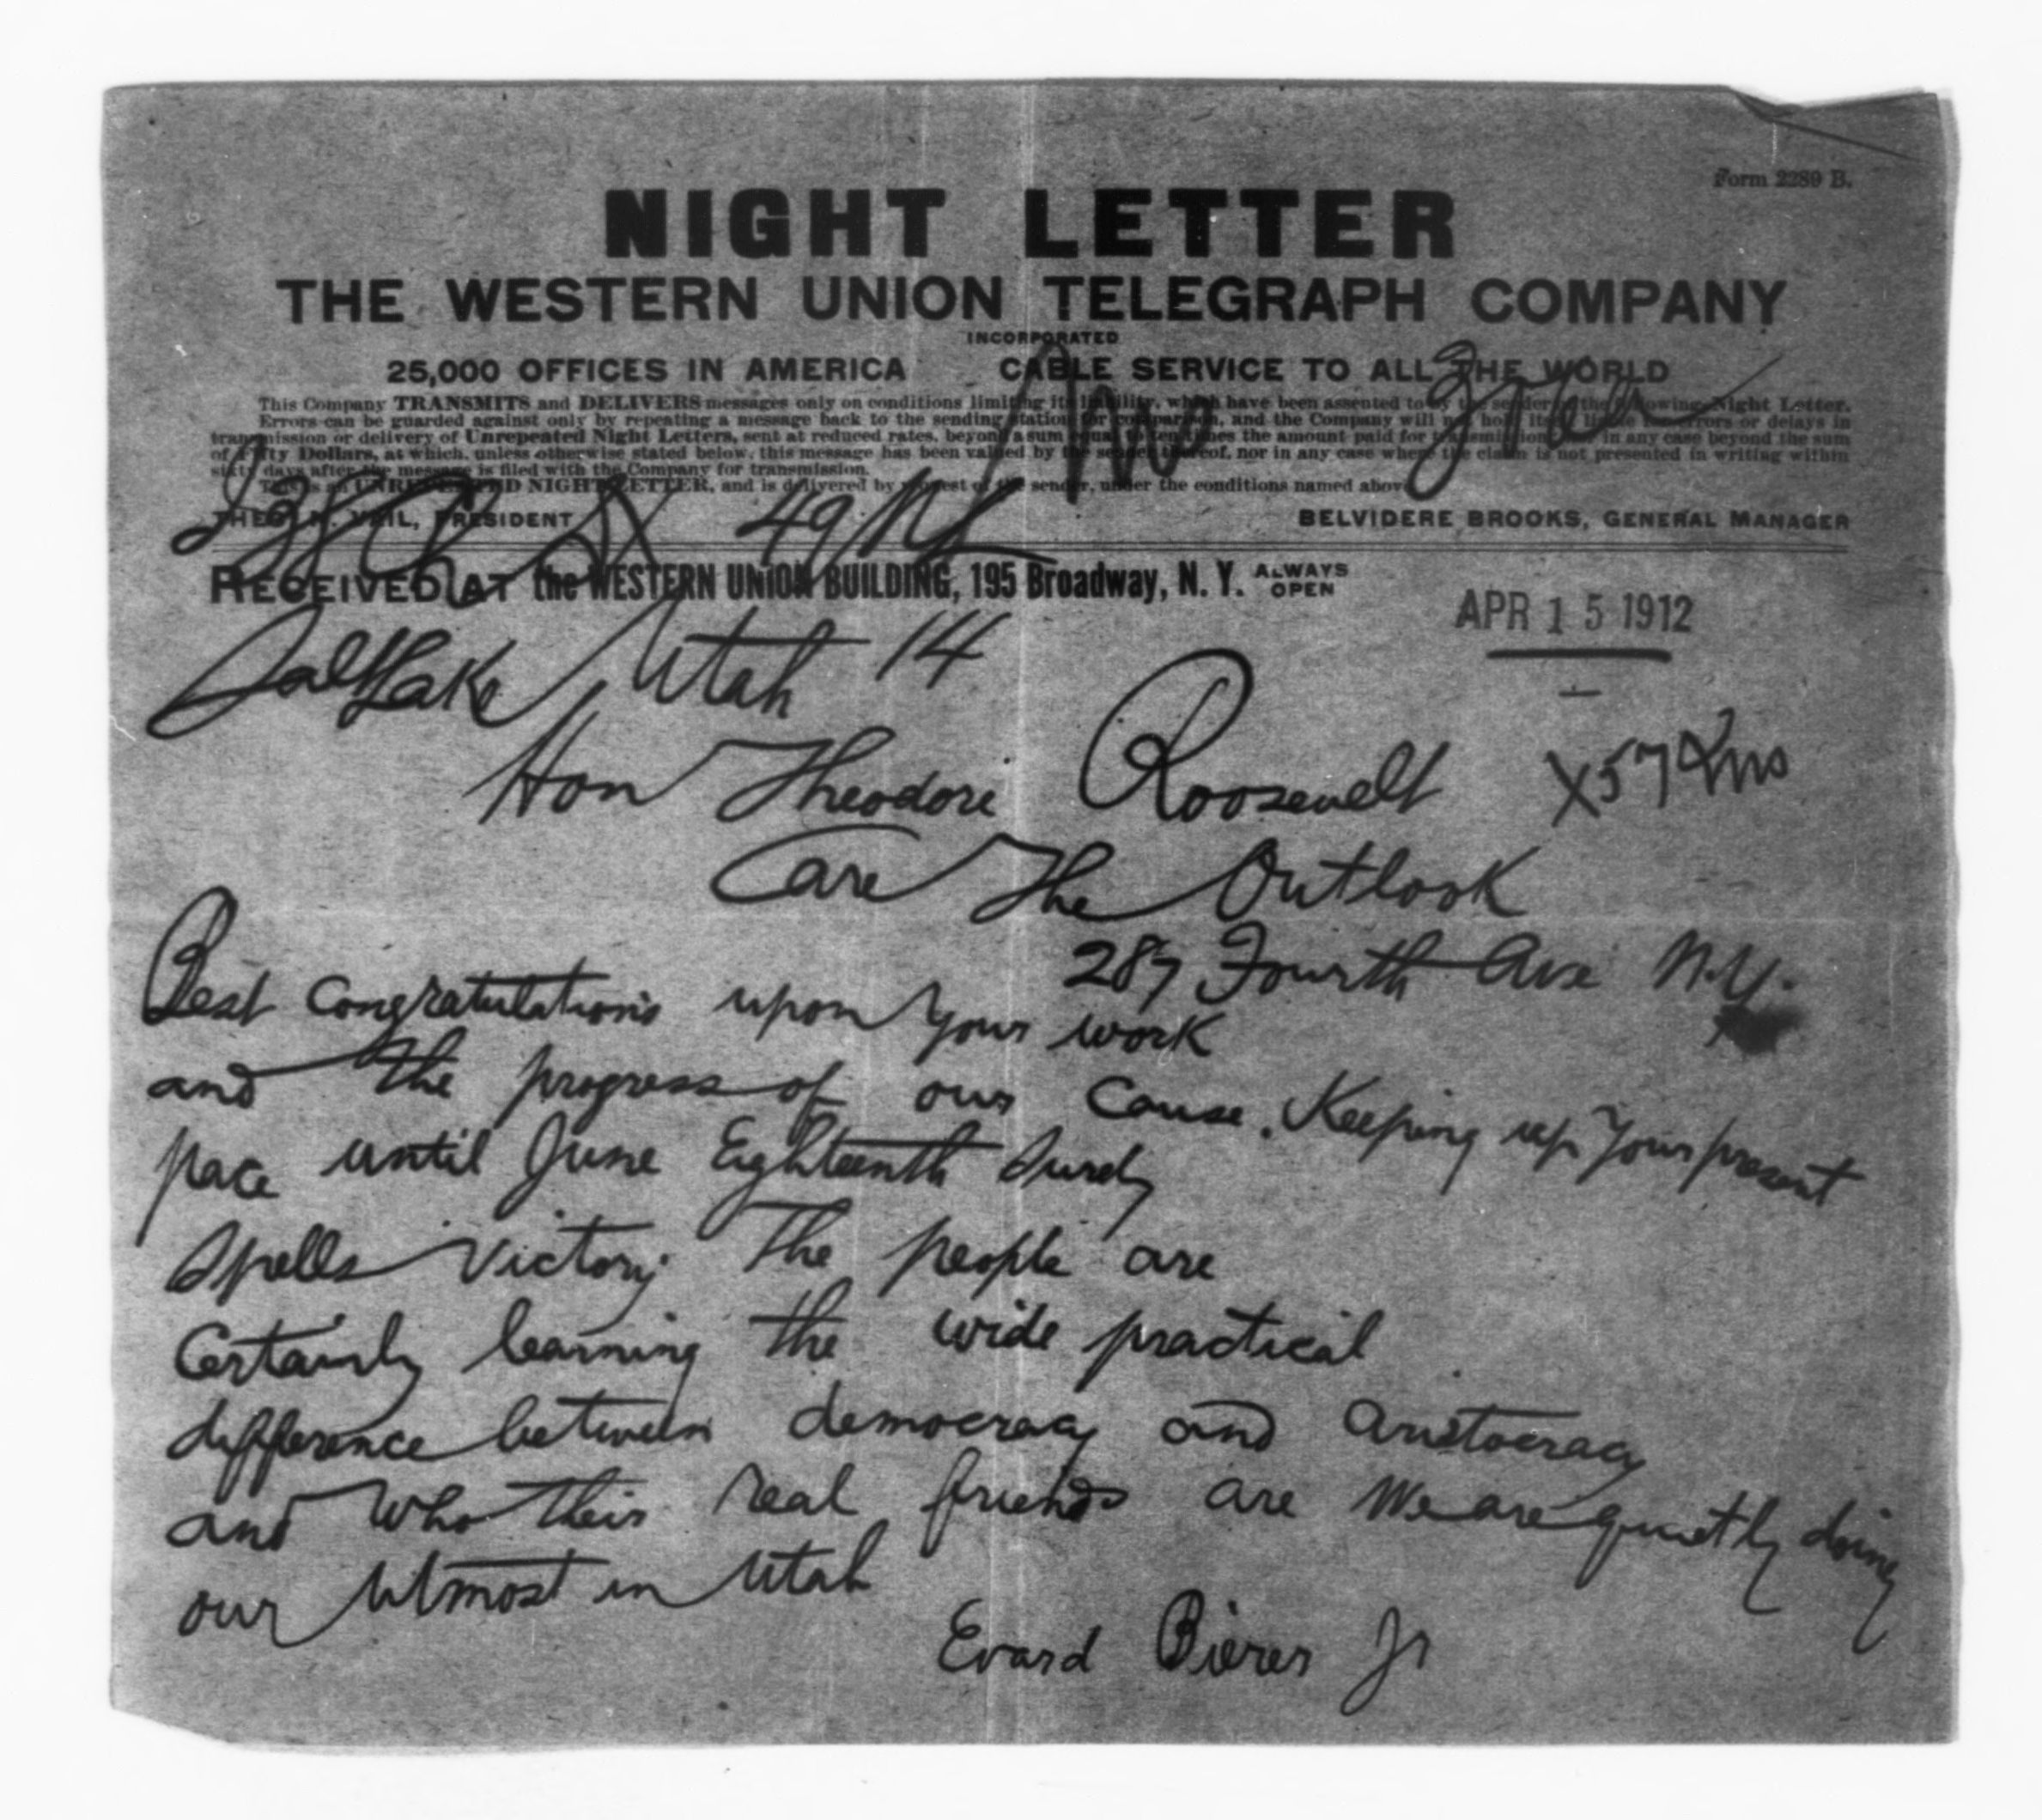 Form 2289 B.
NIGHT LETTER
THE WESTERN UNION TELEGRAPH COMPANY
INCORPORATED
25,000 OFFICES IN AMERICA CABLE SERVICE TO ALL THE WORLD
This Company TRANSMITS and DELIVERS messages only on conditions limiting its liability, which have been assented to by the sender of the following Night Letter.
Errors can be guarded against only by repeating a message back to the sending station for comparison, and the Company will not hold itself liable for errors or delays in
transmission or delivery of Unrepeated Night Letters, sent at reduced rates, beyond a sum equal to ten times the amount paid for transmission; nor in any case beyond the sum
of Fifty Dollars, at which, unless otherwise stated below, this message has been valued by the sender thereof, nor in any case where the claim is not presented in writing within
sixty days after the message is filed with the Company for transmission.
This is an UNREPEATED NIGHT LETTER, and is delivered by request of the sender, under the conditions named above.
THEO. N. VAIL, PRESIDENT BELVIDERE BROOKS, GENERAL MANAGER
49 NL
RECEIVED AT the WESTERN UNION BUILDING, 195 Broadway, N. Y. ALWAYS OPEN
APR 15 1912
Salt Lake Utah 14
Hon Theodore Roosevelt X57
Care The Outlook
287 Fourth Ave N.Y.
Best Congratulations upon your work
and the progress of our Cause. Keeping up your present
pace until June Eighteenth Surely
Spells Victory. The people are
Certainly learning the wide practical
difference between democracy and aristocracy
and who their real friends are We are quietly doing
our utmost in Utah
Evard Bierer Jr